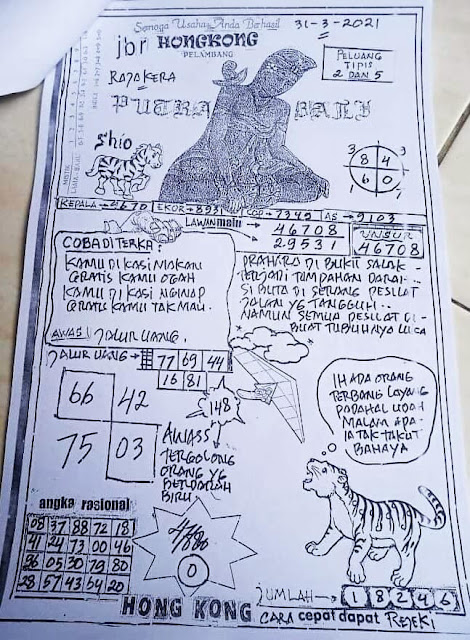 Semoga Usaha Anda Berhasil
31-3-2021
jbr HONGKONG
PELAMBANG
RAJA KERA
PELUANG
TIPIS
2 DAN 5
PUTRA BALI
Shio
3 3
8 4
6 0
KEPALA → 4670 EKOR → 8931 COP → 7349 AS → 9103
LAWAN main → 46708
29531
UNSUR
46708
COBA DI TERKA:
KAMU DI KASI MAKAN
GRATIS KAMU OGAH
KAMU DI KASI NGINAP
GRATIS KAMU TAK MAU.
AWAS! JALUR UANG.
PRAHARA DI BUKIT SALAK
TERJADI TUMPAHAN DARAH
SI BUTA DI SERANG PESILAT
JALAN YG TANGGUH..
NAMUN SEMUA PESILAT DI-
BUAT TUBUHNYA LUCA
JALUR UANG → 77 69 44
16 81
148
66 42
75 03
AWASS
TERGOLONG
ORANG YG
BERDARAH
BIRU.
IH ADA ORANG
TERBANG LAYANG
PADAHAL UDAH
MALAM APA
IA TAK TAKUT
BAHAYA
angka rasional
08 37 88 72 18
41 24 73 00 46
36 05 30 79 80
28 57 43 64 20
0
JUMLAH → 1 8 2 4 6
HONG KONG CARA cepat dapat REJEKI